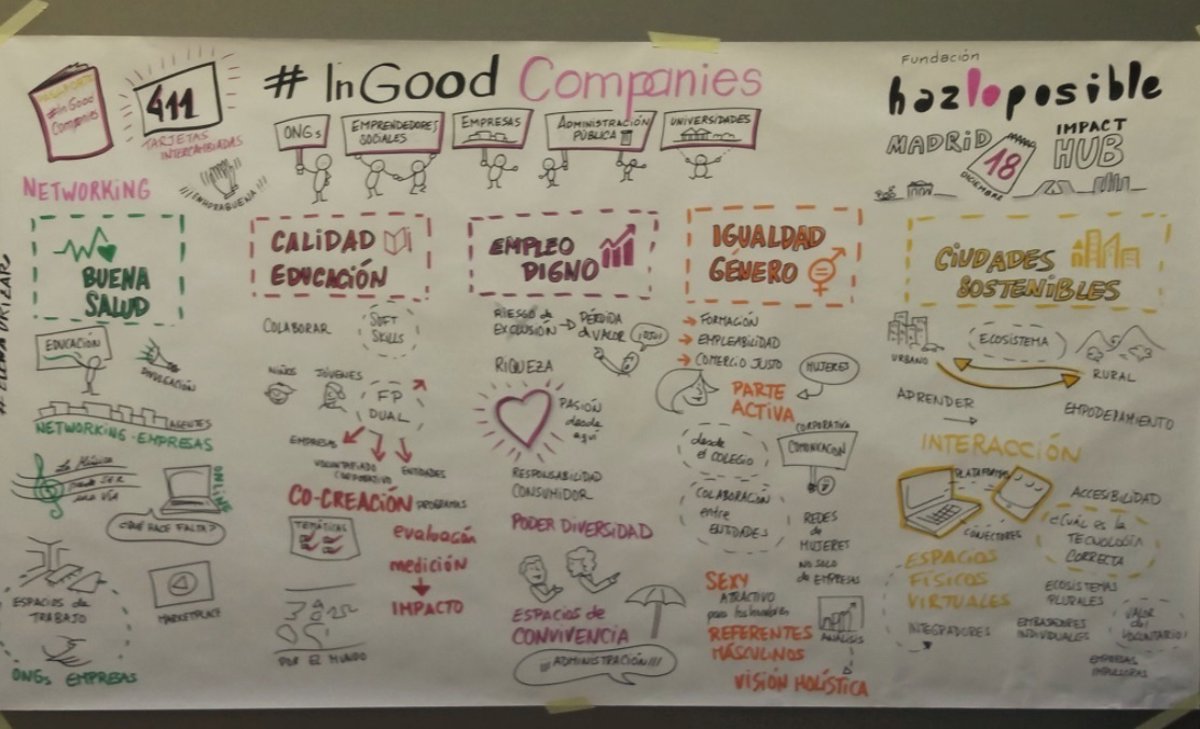 PASAPORTE
#InGood
Companies
411
TARJETAS
INTERCAMBIADAS
¡¡¡ENHORABUENA!!!
NETWORKING
# InGood Companies
ONGs
EMPRENDEDORES
SOCIALES
EMPRESAS
ADMINISTRACIÓN
PÚBLICA
UNIVERSIDADES
Fundación
hazloposible
MADRID
18
DICIEMBRE
IMPACT
HUB
BUENA
SALUD
EDUCACIÓN
DIVULGACIÓN
AGENTES
NETWORKING · EMPRESAS
La Música
puede SER
una VÍA
ONLINE
¿QUÉ HACE FALTA?
ESPACIOS de
TRABAJO
MARKETPLACE
ONGs EMPRESAS
CALIDAD
EDUCACIÓN
COLABORAR
SOFT
SKILLS
NIÑOS
JÓVENES
FP
DUAL
EMPRESAS
VOLUNTARIADO
CORPORATIVO
ENTIDADES
CO-CREACIÓN PROGRAMAS
TEMÁTICAS
evaluación
medición
IMPACTO
POR EL MUNDO
EMPLEO
DIGNO
RIESGO de
EXCLUSIÓN
PÉRDIDA
d VALOR
RIQUEZA
PASIÓN
desde
aquí
RESPONSABILIDAD
CONSUMIDOR
PODER DIVERSIDAD
ESPACIOS de
CONVIVENCIA
¡¡¡ADMINISTRACIÓN!!!
IGUALDAD
GÉNERO
FORMACIÓN
EMPLEABILIDAD
COMERCIO JUSTO
MUJERES
PARTE
ACTIVA
desde
el COLEGIO
CORPORATIVA
COMUNICACIÓN
COLABORACIÓN
entre
ENTIDADES
REDES
de
MUJERES
NO SOLO
de EMPRESAS
SEXY
ATRACTIVO
para los hombres
REFERENTES
MASCULINOS
ANÁLISIS
VISIÓN HOLÍSTICA
CIUDADES
SOSTENIBLES
URBANO
ECOSISTEMA
RURAL
APRENDER
EMPODERAMIENTO
INTERACCIÓN
PLATAFORMAS
CONECTORES
ACCESIBILIDAD
¿CUÁL ES la
TECNOLOGÍA
CORRECTA
ESPACIOS
FÍSICOS
VIRTUALES
INTEGRADORES
ECOSISTEMAS
PLURALES
EMBAJADORES
INDIVIDUALES
VALOR
del
VOLUNTARIO
EMPRESAS
IMPULSORAS